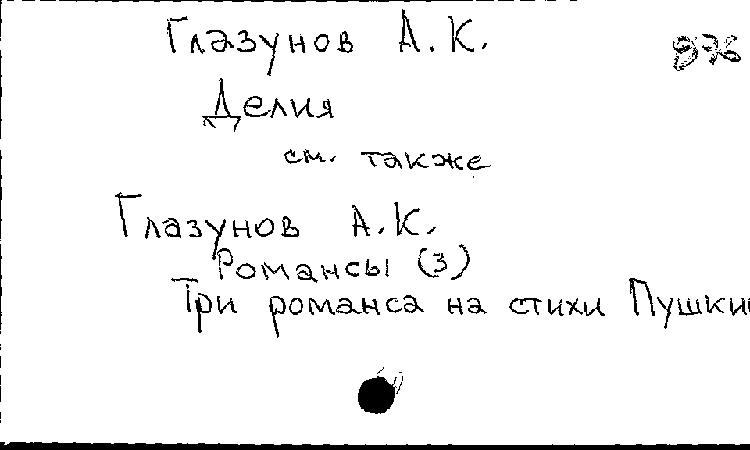 Глазунов А.К.
876
Делия
см. также
Глазунов А.К.
Романсы (3)
Три романса на стихи Пушки